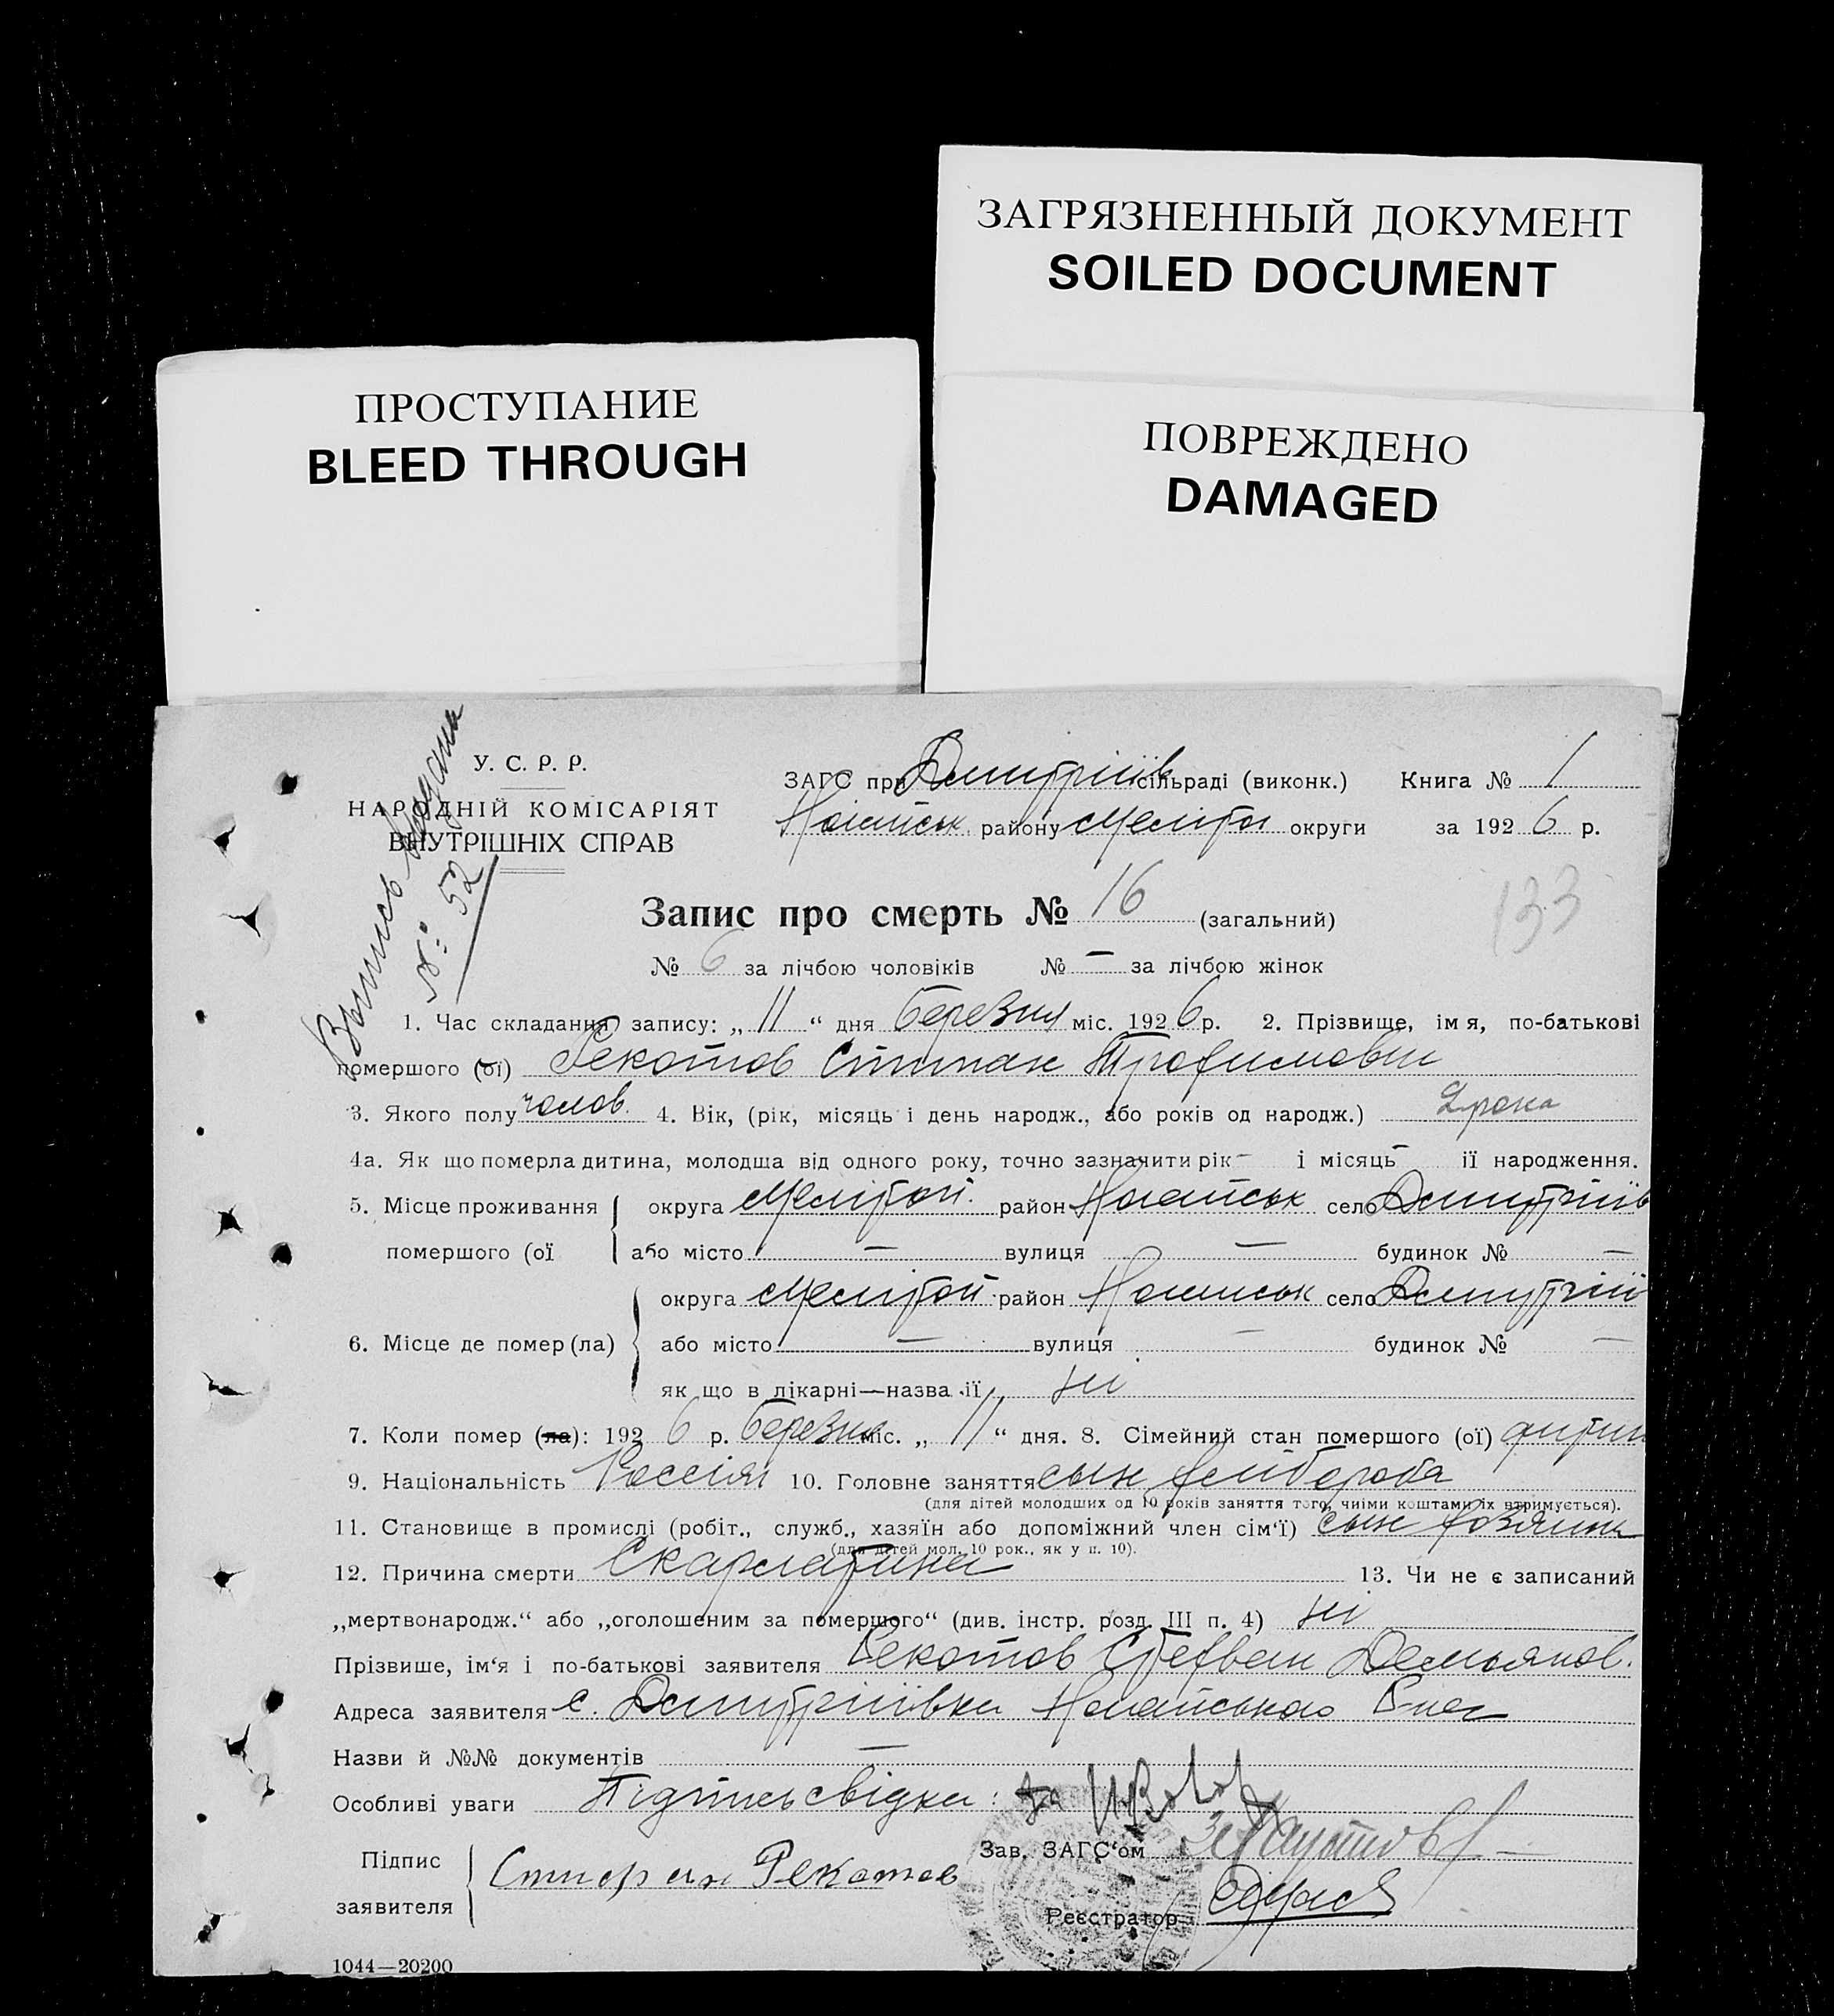 ЗАГРЯЗНЕННЫЙ ДОКУМЕНТ
SOILED DOCUMENT
ПРОСТУПАНИЕ
BLEED THROUGH
ПОВРЕЖДЕНО
DAMAGED
Выпись выдана
№ 52
У. С. Р. Р.
НАРОДНІЙ КОМІСАРІЯТ
ВНУТРІШНІХ СПРАВ
ЗАГС при Дмитріїв сільраді (виконк.) Книга № 1
Ногайськ району Меліт округи за 1926 р.
Запис про смерть № 16 (загальний)
133
№ 6 за лічбою чоловіків № — за лічбою жінок
1. Час складання запису: „11“ дня березня міс. 1926 р. 2. Прізвище, імя, по-батькові
помершого (ої) Рекотов Степан Трофимович
3. Якого полу чолов. 4. Вік, (рік, місяць і день народж., або років од народж.) 2 рока
4а. Як що померла дитина, молодша від одного року, точно зазначити рік — і місяць — її народження.
5. Місце проживання помершого (ої округа Меліт район Ногайськ село Дмитріїв
або місто — вулиця — будинок № —
6. Місце де помер (ла) округа Меліт район Ногайськ село Дмитріїв
або місто — вулиця — будинок № —
як що в лікарні—назва її ні
7. Коли помер (ла): 1926 р. березня міс. „11“ дня. 8. Сімейний стан помершого (ої) дитин
9. Національність Россіян 10. Головне заняття сын хлібороба
(для дітей молодших од 10 років заняття того, чиіми коштами їх втримується).
11. Становище в промислі (робіт., служб., хазяїн або допоміжний член сім‘ї) сын хозяина
(для дітей мол. 10 рок., як у п. 10).
12. Причина смерти Скарлатина 13. Чи не є записаний
„мертвонародж.“ або „оголошеним за помершого“ (див. інстр. розд. III п. 4) ні
Прізвище, ім‘я і по-батькові заявителя Рекотов Стефан Демьянов.
Адреса заявителя с. Дмитріївка Ногайського
Назви й №№ документів —
Особливі уваги Підпись свідки: за
Підпис заявителя Стифан Рекотов
Зав. ЗАГС‘ом
Реєстратор
1044—20200